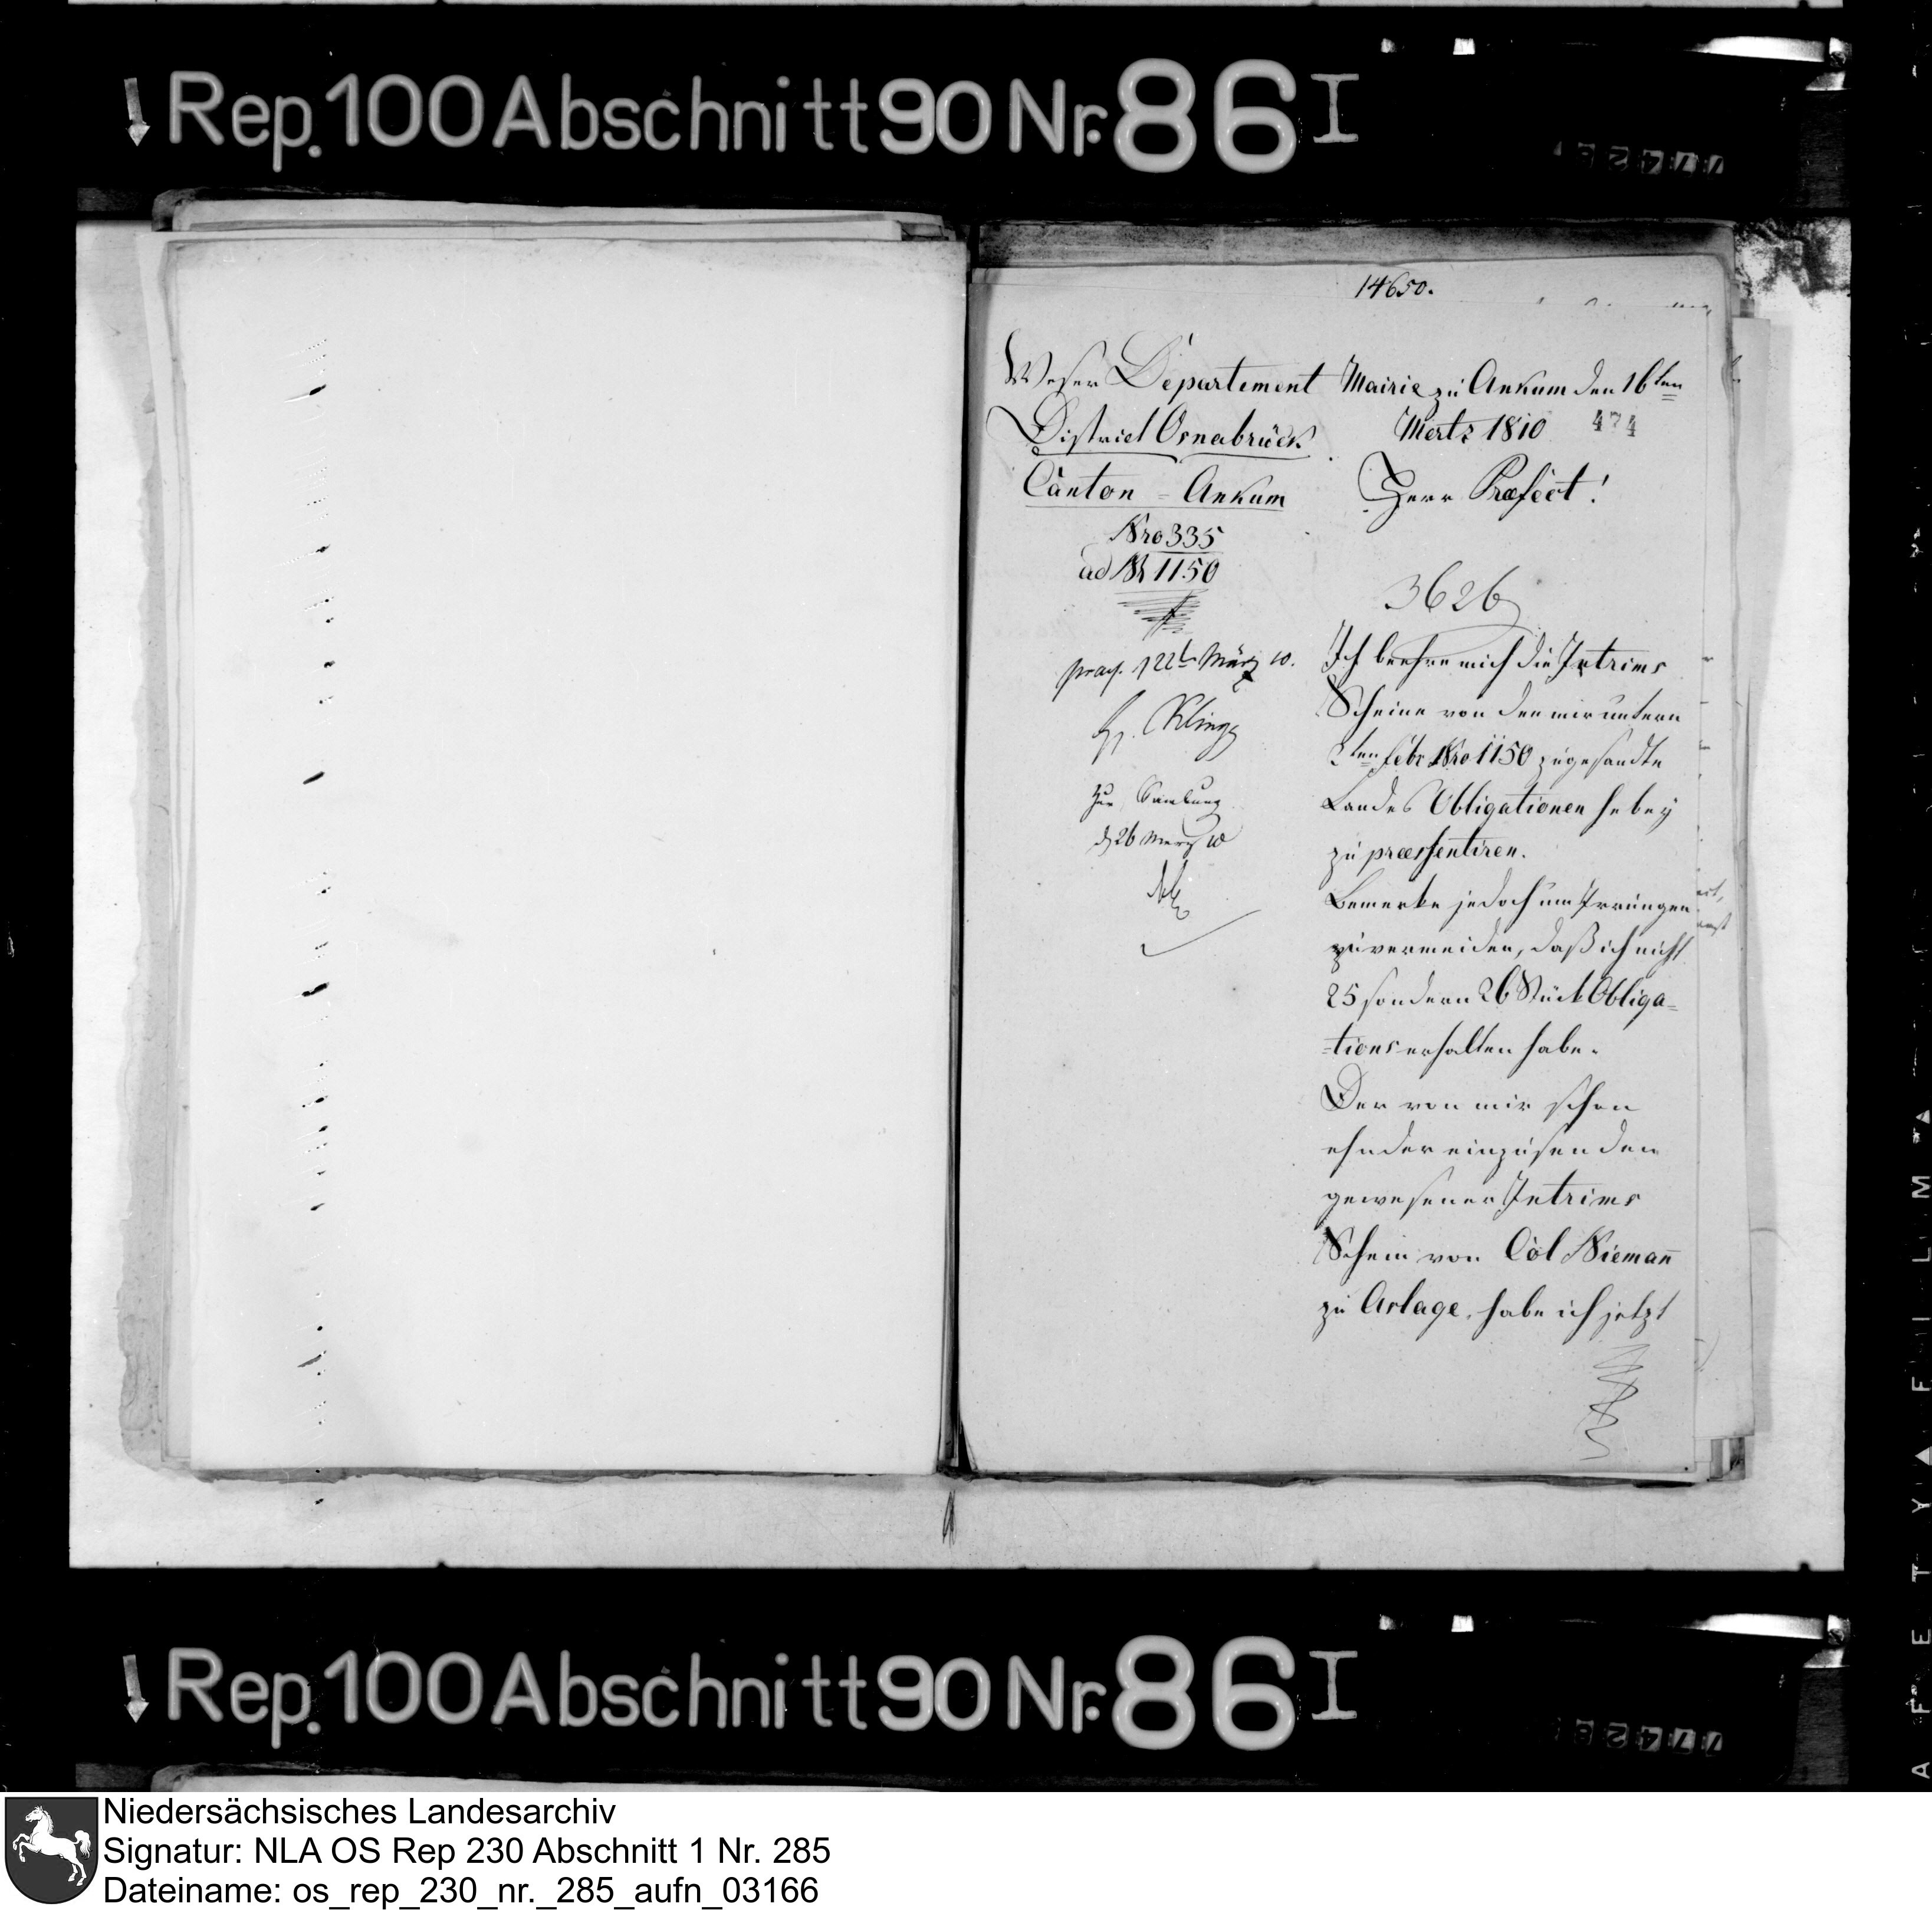 Rep. 100 Abschnitt 90 Nr. 86 I
14650.
Weser Departement
District Osnabrück
Canton = Ankum
Nro 335
ad Nr 1150
praes. 22t März 10.
Klingg
Zur Samlung
d 26 Merz 10
Mairie zu Ankum den 16ten
Mertz 1810
474
Herr Præfect!
3626
Ich beehre mich die Intrims
Scheine von den mir untern
2ten Febr Nro 1150 zugesandte
Landes Obligationen hebey
zu præssentiren.
Bemerke jedoch um Irrungen
zuvermeiden, daß ich nicht
25 sondern 26 Stück Obliga=
=tions erhalten habe.
Der von mir schon
ehnder einzusenden
gewesener Intrims
Schein von Col Niemañ
zu Aslage, habe ich jetzt
Rep. 100 Abschnitt 90 Nr. 86 I
Niedersächsisches Landesarchiv
Signatur: NLA OS Rep 230 Abschnitt 1 Nr. 285
Dateiname: os_rep_230_nr._285_aufn_03166